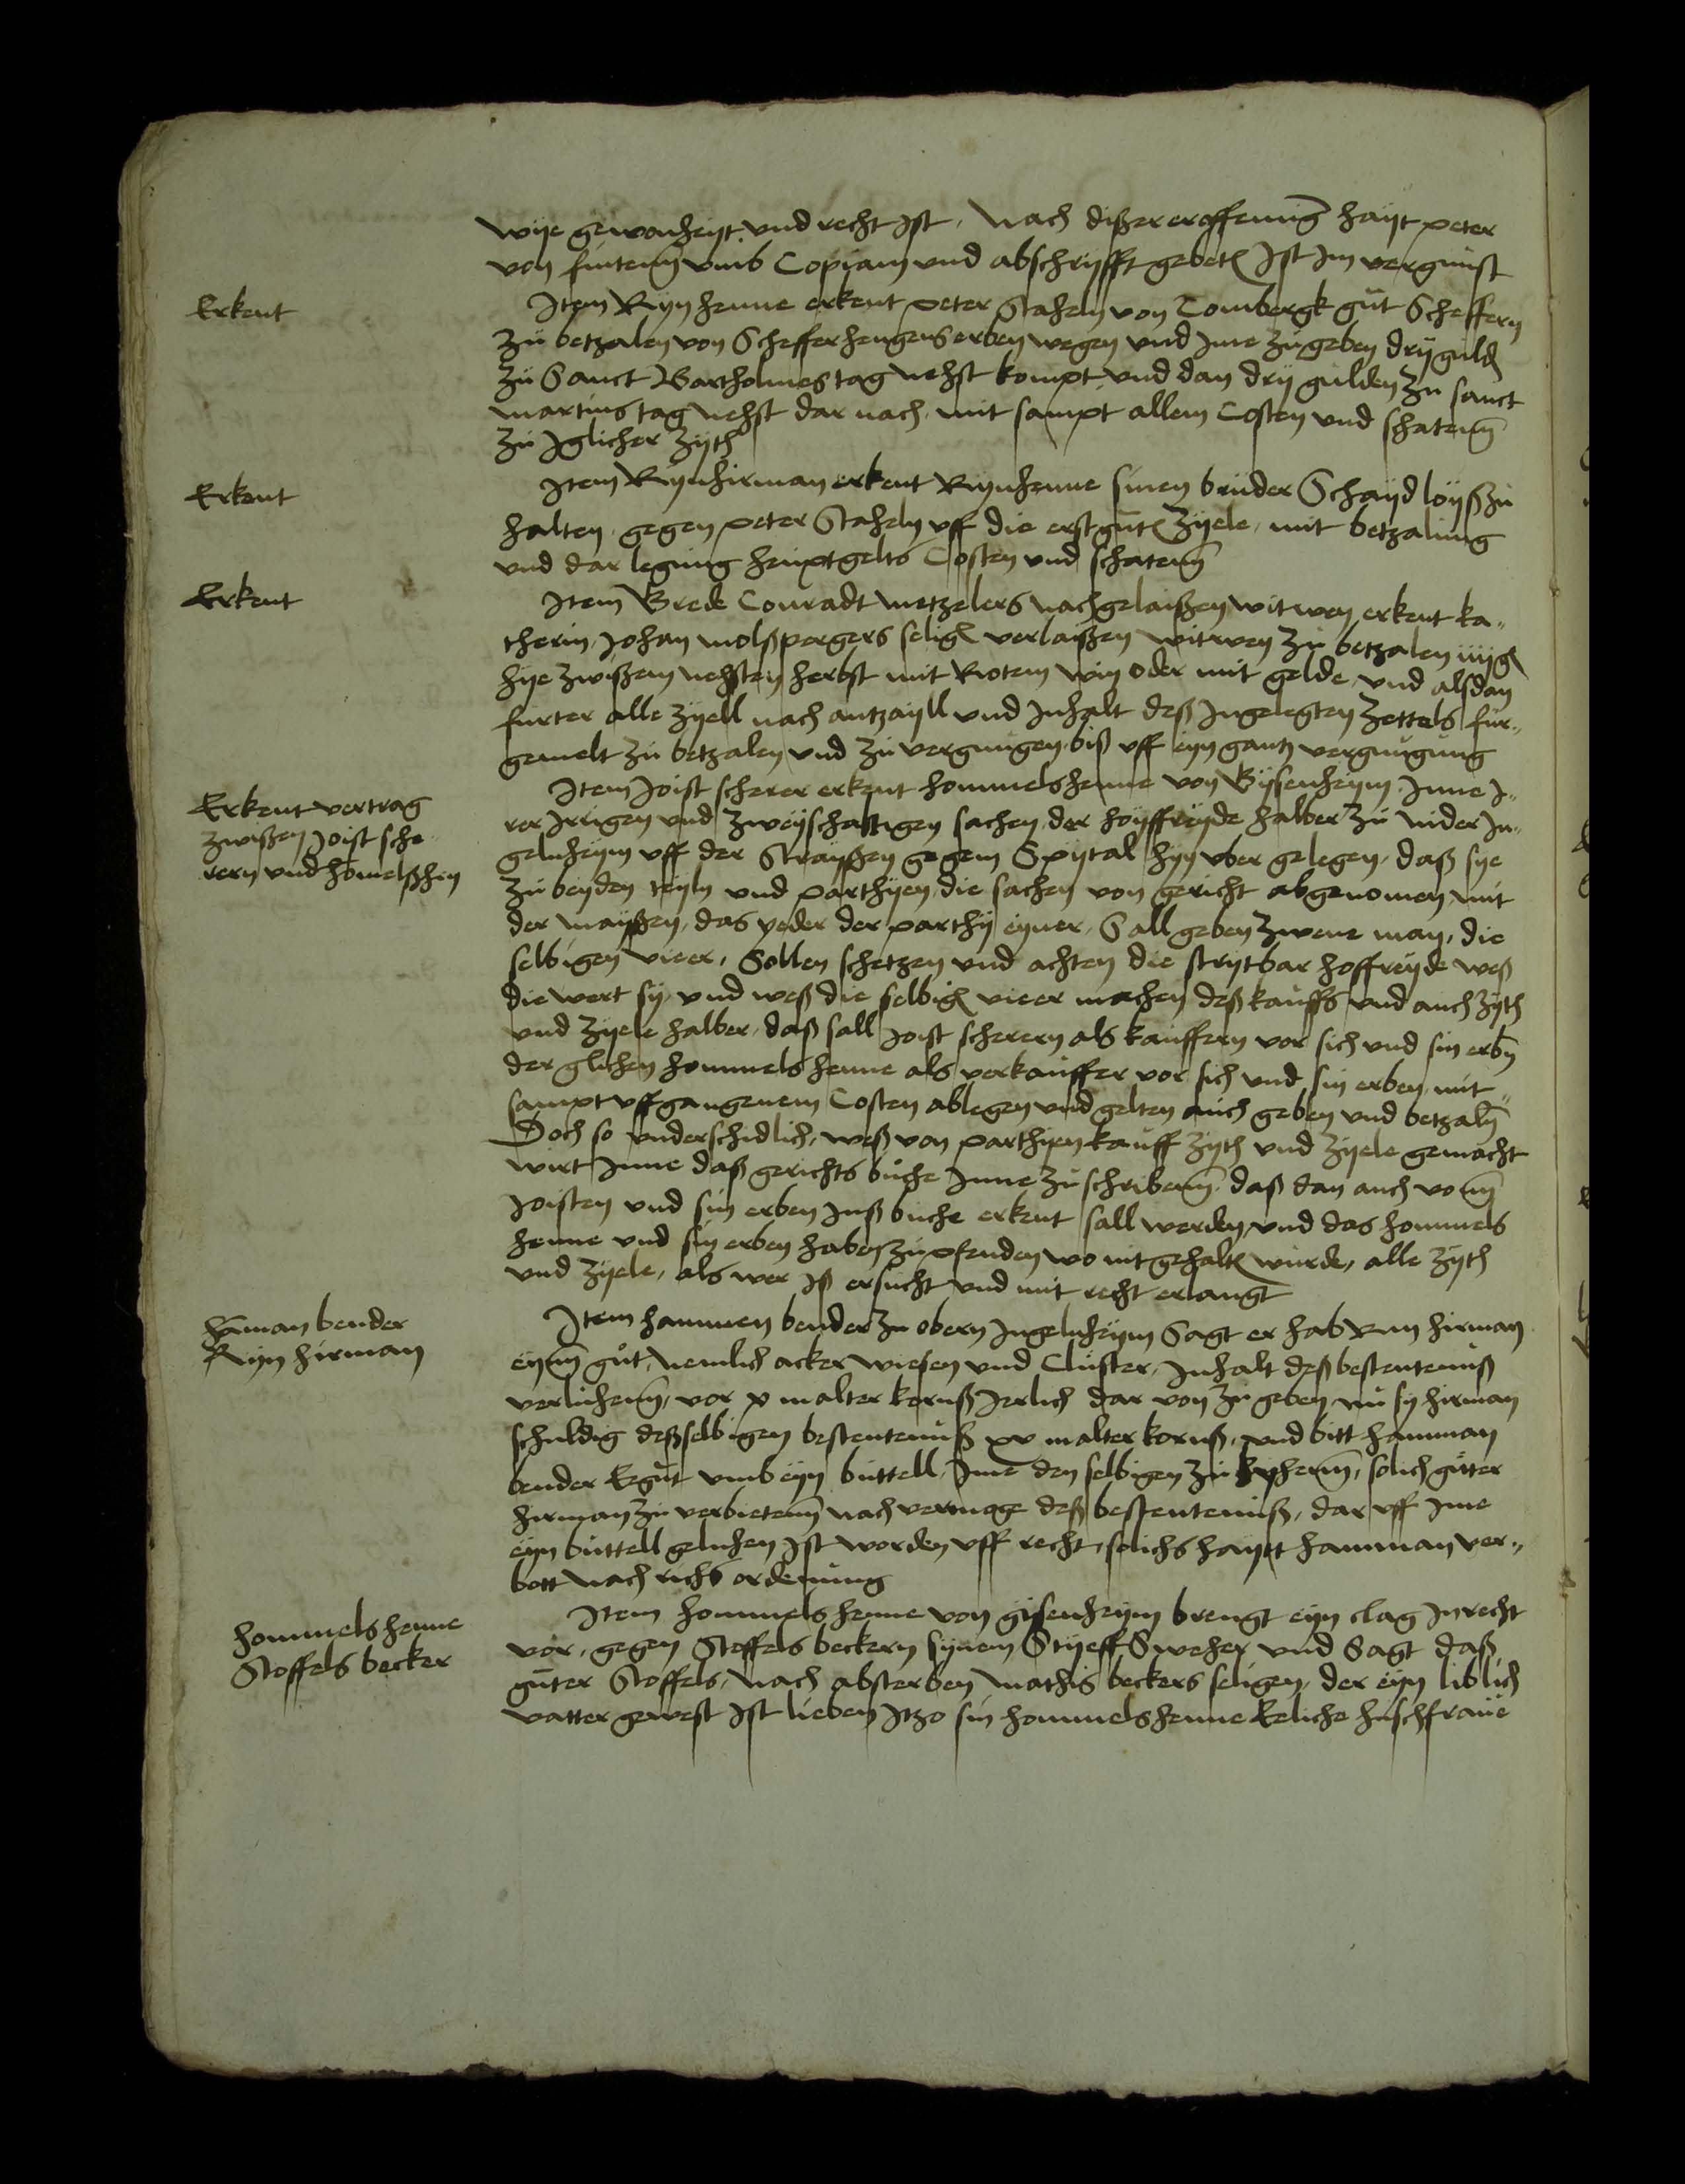 wije gewonheijt und recht Ist, Nach dißer eroffenūg haijt peter
von fintenn̄ umb Copiam und abschrijfft gebetē Ist Im vergunst
Erkent
Item Rijnhenne erkent peter Staheln von Lombergk gut Scheffern
zu betzalen von Schefferhengens erben wegen und Ime zu geben drij guld
zu Sanct Bartholmes tag nehst kompt und dan drij gulden zu sanct
martins tag nehst dar nach, mit sampt allem Costen und schatenn̄
zu Iglicher zijth
Erkent
Item Rijnhirman erkent Rijnhenne sinen bruder Schaijdloijß zu
halten, gegen peter Staheln uff die erstgutē zijele, mit betzalung
und dar legung heuptgelts Costen und schatenn̄
Erkent
Item Brede Conradt metzelers nachgelaißen witwen, erkent ka„
therin, Johan molßpergers seligē verlaißen witwen zu betzalen iiij gl
hije zwißem nehsten herbst mit Rotem win oder mit gelde, und alsdan
furter alle zijell nach antzaijll und Inhalt deß Ingelegten zettels fur„
gemelt zu betzalen und zu vergnugen biß uff eijn gantz vergnugung
Erkent vertrag
zwißen Joist sche„
rern und homelßhen
Item Joist scherer erkent hommelshenne von Gijsenheijm, Inne I„
rer Irrigen und zweijschafftigen sachen, der hoijffreijde halber zu nider In„
gelnheijm uff der Straijßen gegem Spijtal hijn uber gelegen, daß sije
zu beijden teijln und parthijen, die sachen von gericht abgenomen, mit
der maijßen, das yeder der parthij eijner, Sall geben zwene man, die
selbigen vieer, Sollen schetzen und achten die strijtbar hoffreijde weß
die wert sij, und weß die selbigē vieer machen, deß kauffs und auch zijth
und zijele halber, daß sall Joist scherern als kauffern vor sich und sin erbn̄
der glichen hommels henne als verkauffer vor sich und sin erben, mit„
sampt uffgangenem Costen ablegen und gelten auch geben und betzaln̄
Doch so underschidlich, weß von parthijen kauff zijth und zijele gemacht
wirt Inne daß gerichts buche Inne zu schribenn̄, daß dan auch vonn̄
Joisten und sin erben Inß buche erkent sall werden, und das hommels
henne und sin erben haben zu pfenden wo nit gehaltē wurde, alle zijth
und zijele, als wer Iß ersucht und mit recht erlangt
hāman bender
Rijn hirman
Item hanmen bender zu obern Ingelnheijm Sagt er hab Rijn hirman
eijnn̄ gut, nemlich acker wiesen und Cluster, Inhalt deß bestentenuß
verluhenn̄, vor x malter kornß Ierlich dar von zu geben, nu sy hirman
schuldig deßselbigen bestentenuß xv malter kornß, und bitt hanman
bender Eegut umb eijn buttell, Ime den selbigen zu lyhenn̄, solich gutter
hirman zu verbietenn̄ nach vermoge deß bestentenuß, dar uff Ime
eijn buttell geluhen Ist worden uff recht, solichs haijtt hanman ver„
bott nach richs ordenung
hommels henne
Stoffels becker
Item hommels henne von gisenheijm brengt eijn clag Inrecht
vor, gegen Stoffels beckern synem Stijeff Sweher und Sagt daß
guter Stoffels, nach absterben mathis beckers seligen, der eijn liblich
vatter gewest Ist lieben Itzo sin hommelshenne Eeliche huschfrauë